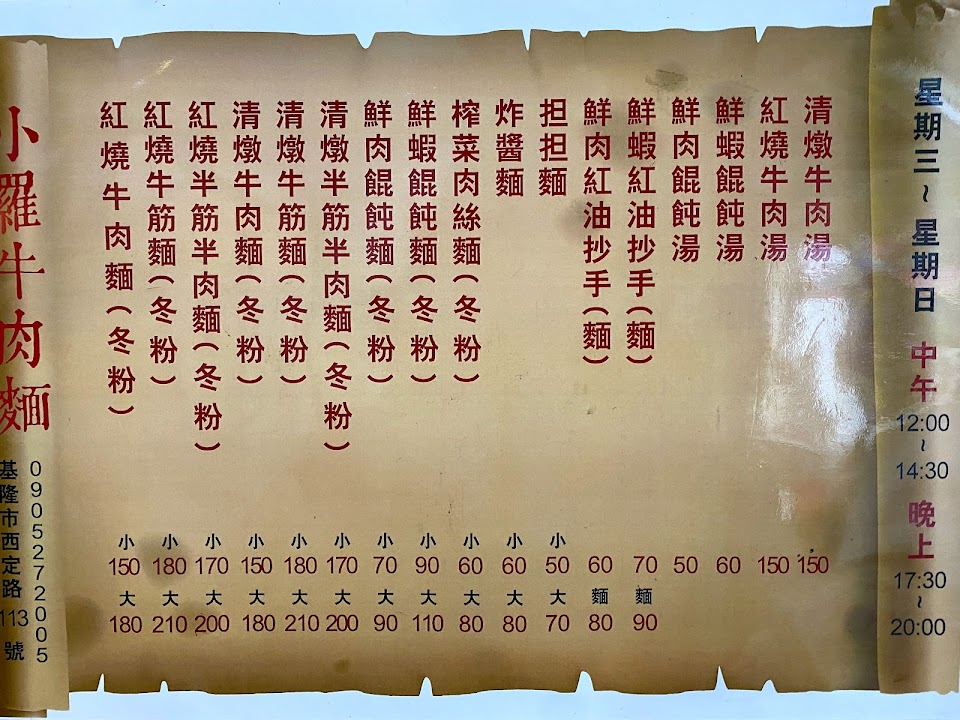 小羅牛肉麵
0905272005
基隆市西定路113號
紅燒牛肉麵(冬粉) 小 150 大 180
紅燒牛筋麵(冬粉) 小 180 大 210
紅燒半筋半肉麵(冬粉) 小 170 大 200
清燉牛肉麵(冬粉) 小 150 大 180
清燉牛筋麵(冬粉) 小 180 大 210
清燉半筋半肉麵(冬粉) 小 170 大 200
鮮肉餛飩麵(冬粉) 小 70 大 90
鮮蝦餛飩麵(冬粉) 小 90 大 110
榨菜肉絲麵(冬粉) 小 60 大 80
炸醬麵 小 60 大 80
担担麵 小 50 大 70
鮮肉紅油抄手(麵) 60 麵 80
鮮蝦紅油抄手(麵) 70 麵 90
鮮肉餛飩湯 50
鮮蝦餛飩湯 60
紅燒牛肉湯 150
清燉牛肉湯 150
星期三~星期日 中午 12:00~14:30 晚上 17:30~20:00